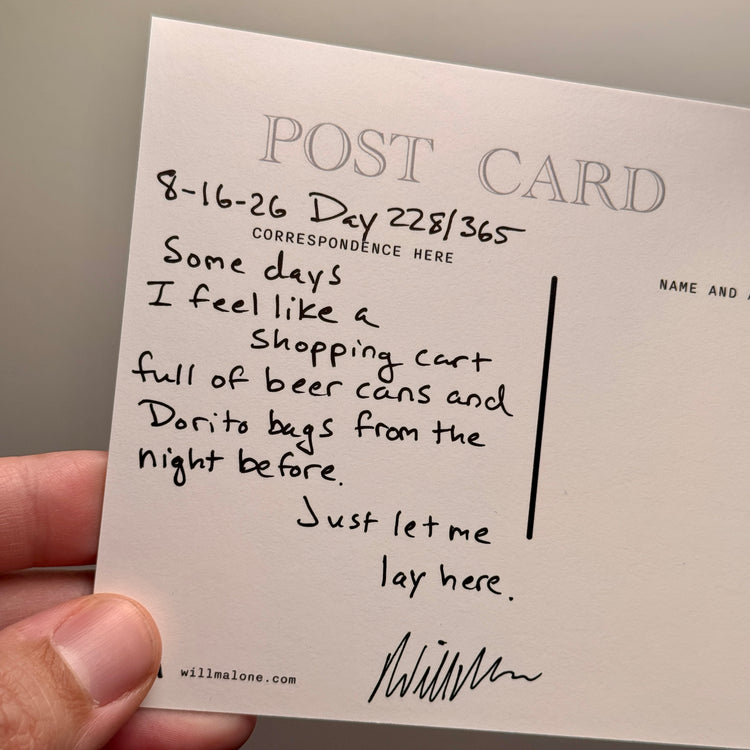 POST CARD
8-16-26 Day 228/365
CORRESPONDENCE HERE
Some days
I feel like a
shopping cart
full of beer cans and
Dorito bags from the
night before.
Just let me
lay here.
NAME AND
willmalone.com